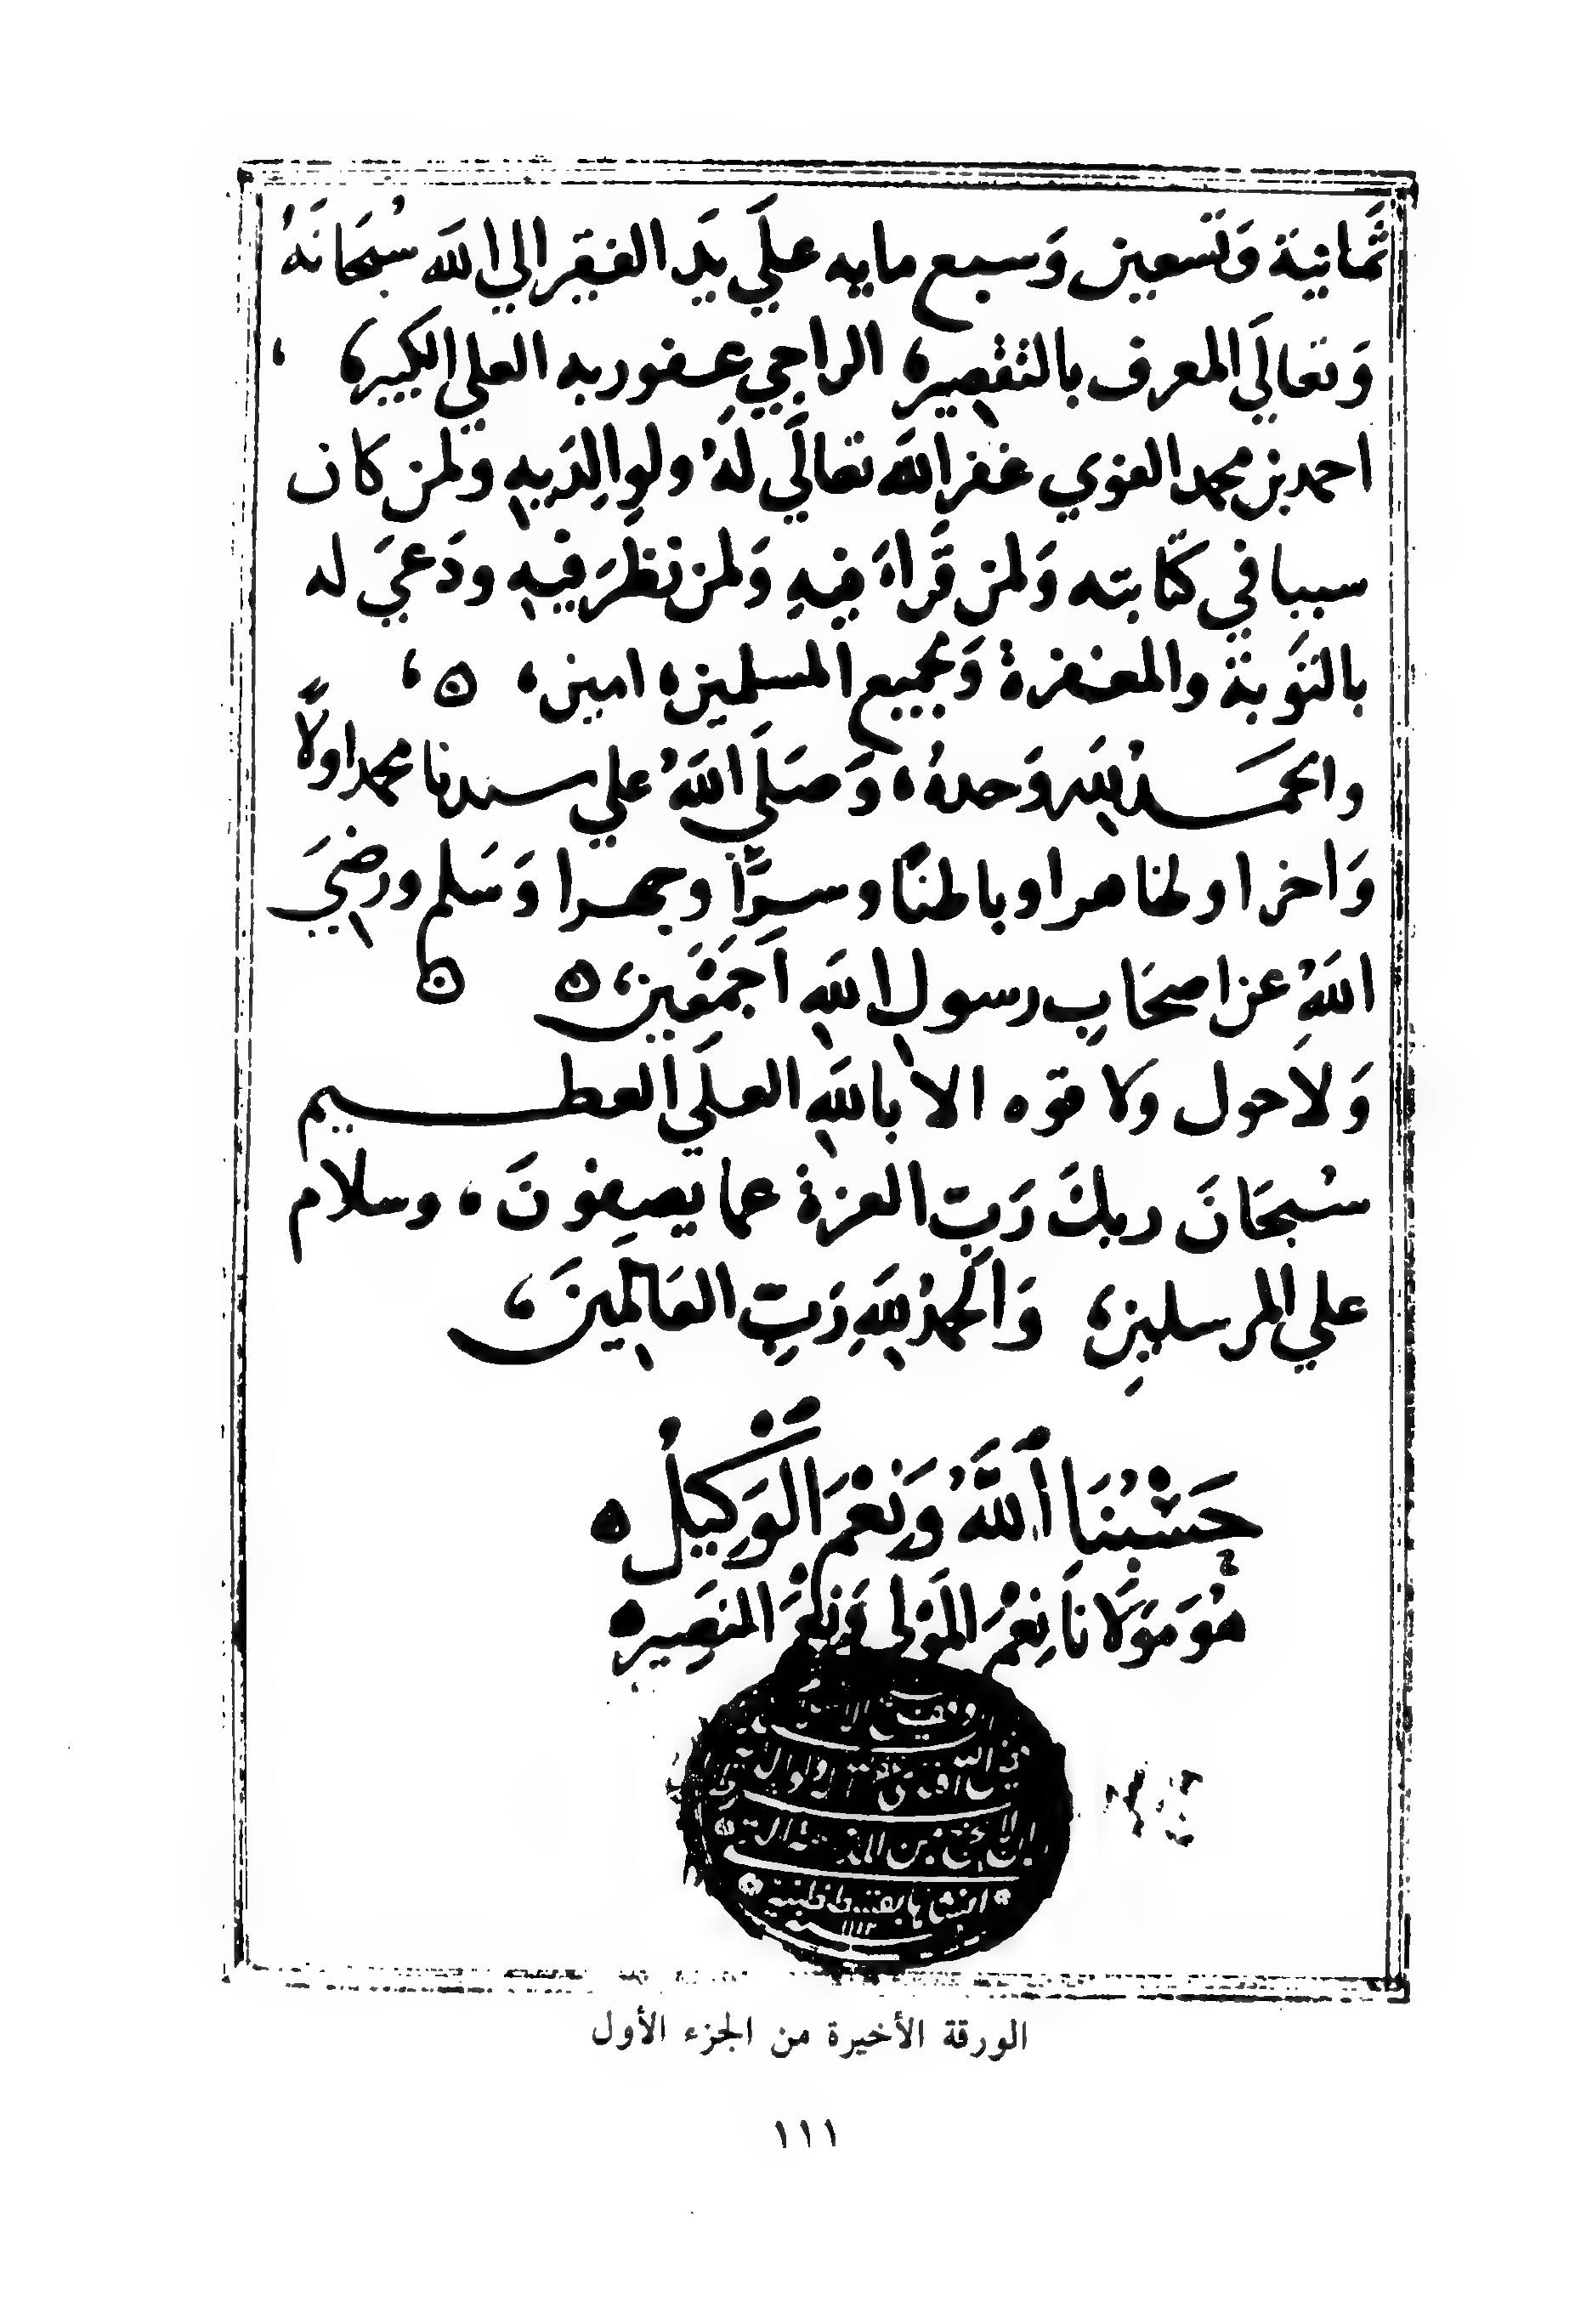 ثَمَانيَة وَتسعين وَسبع مايه علَي يَد الفقير الي الله سُبحَانَهُ
وَتعالَي المعرف بالتقصير، الراجي عفو ربه العلي الكبير،
احمد بن محمد الغزي غفر الله تعالَي لهُ ولوالِدَيهِ ولمن كان
سببا في كتَابته وَلمن قَراهَ فيهِ وَلمن نظَر فيهِ ودَعيَ له
بالتوَبة والمغفرة وَلجميع المسلمين، امين، ه ،
والحمَدُ للهِ وَحدهُ، وَصَلَي اللهُ علي سيدنا محمد اولاً
وَاخرا وظاهرا وباطنًا وسرًّا وجهرا وَسَلم ورضيَ
اللهُ عن اصحَابِ رسول اللهِ اَجمَعَين، ه ه
وَلاَحول ولا قوه الا باللهِ العلَي العظيم
سُبحَانَ ربكَ رَبِّ العزة عما يصِفونَ، وسلام
علي المرسلينِ، وَالحمدُ للهِ رَبِّ العَالمِينَ،
حَسْبُنَا اللَّهُ وَنِعْمَ الْوَكيلُ ه
هُوَ مَوْلَانَا نِعْمَ المَوْلى وَنِعْمَ النصِير ه
ابن الحاج
انشاها بقسطنطينية
الورقة الأخيرة من الجزء الأول
١١١